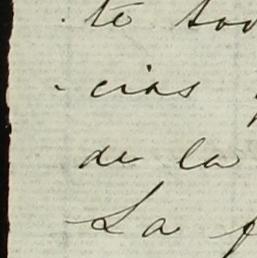 te
cias
de la
La